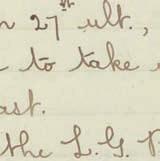 27st ult.,
to take
ast.
the L.G.